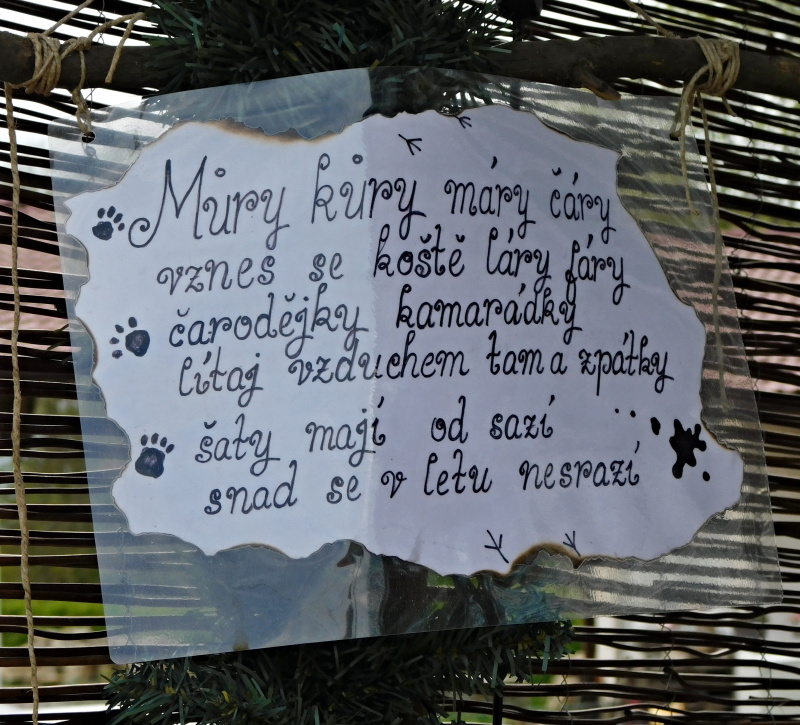 Můry kůry máry čáry
vznes se koště láry fáry
čarodějky kamarádky
lítaj vzduchem tam a zpátky
šaty mají od sazí
snad se v letu nesrazí